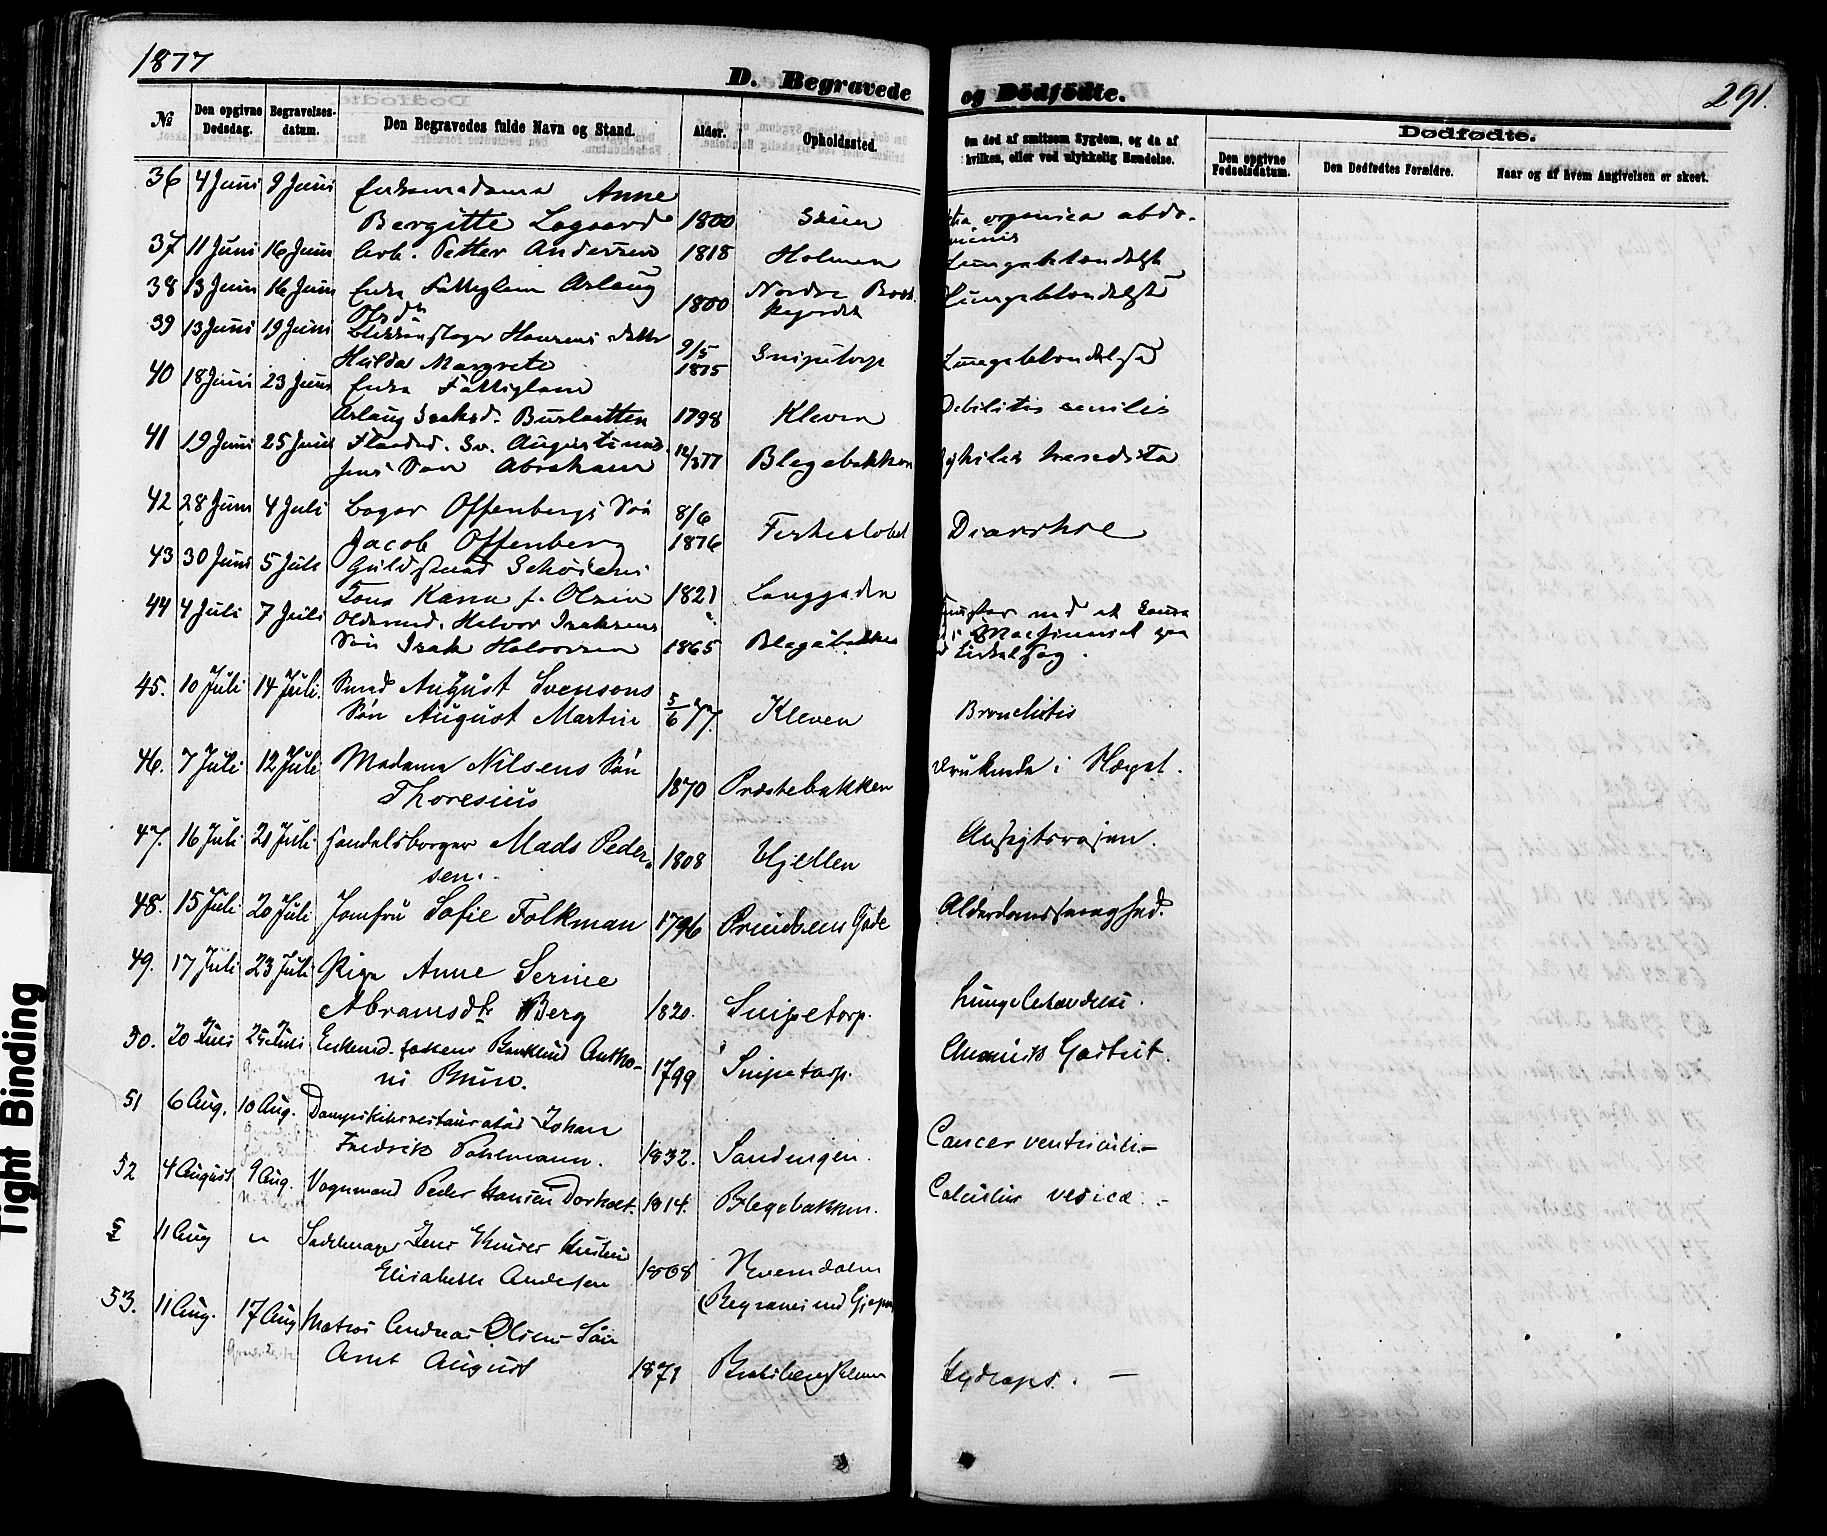 1877
D. Begravede
og Dödfödte.
291.
№
Den opgivne Dødsdag.
Begravelses-datum.
Den Begravedes fulde Navn og Stand.
Alder.
Opholdssted.
Om død af smitsom Sygdom, og da af hvilken, eller ved ulykkelig Hændelse.
Dødfødte.
Den opgivne Fødselsdatum.
Den Dødfødtes Forældre.
Naar og af hvem Angivelsen er skeet.
36 4 Juni 9 Juni Enkemadame Anne
Bergitte Lagaard 1800
37 11 Juni 16 Juni Arb. Petter Andersen 1818 Holmen Lungebetændelse
38 13 Juni 16 Juni Enke Fattiglem Aslaug 1800 Nordre Lungebetændelse
Olsd.
39 13 Juni 19 Juni Blikkenslager Hansens Datter 9/5
Hulda Margrete 1875 Snipetorp Lungebetændelse
40 18 Juni 23 Juni Enke Fattiglem
Aslaug Isaksd. 1798 Kleven Debilitis senilis
41 19 Juni 25 Juni 12/3 77
Søn Abraham Blegebakken
42 28 Juni 4 Juli Bager Offenbergs Søn 8/6
Jacob Offenberg 1876 Diarrhoe
43 30 Juni 5 Juli Guldsmed
Tona Karen f. Olsen 1821 Langgaden
44 4 Juli 7 Juli Halvor Isaksens
Søn Isak Halvorsen 1865 Blegebakken
45. 10 Juli 14 Juli. Smed August Svensons
Søn August Martin 5/6 77. Kleven Bronchitis
46. 7 Juli 12 Juli Madame Nilsens Søn
Thoresius 1870 Præstebakken druknede i
47. 16 Juli 21 Juli Handelsborger Mads Peder-
sen. 1808 Hjellen Ansigtsrosen.
48. 15 Juli 20 Juli Jomfru Sofie Folkman 1796 Prindsens Gade Alderdomssvaghed.
49. 17 Juli 23 Juli Pige Anne Serine
Abramsdtr Berg 1820. Snipetorp. Lungebetændelse.
50. 20 Juli 25 Juli Antho-
ni Bruun. 1799 Snipetorp. Chronisk Gastrit.
51 6 Aug. 10 Aug. Dampskibsrestauratør Johan
Fredrik Pohlmann. 1832. Sandengen. Cancer ventriculi.-
52 4 August 9 Aug. Vognmand Peder Hansen Dorholt. 1814. Blegebakken. Calculus vesicæ. -
11 Aug " Sadelmager Jens Hustru
Elisabeth Andersen 1808
(Begraves ved Gjerpen
53. 11 Aug. 17 Aug Matros Andreas Olsens Søn
Arnt August 1871 Hydrops. -
Tight Binding